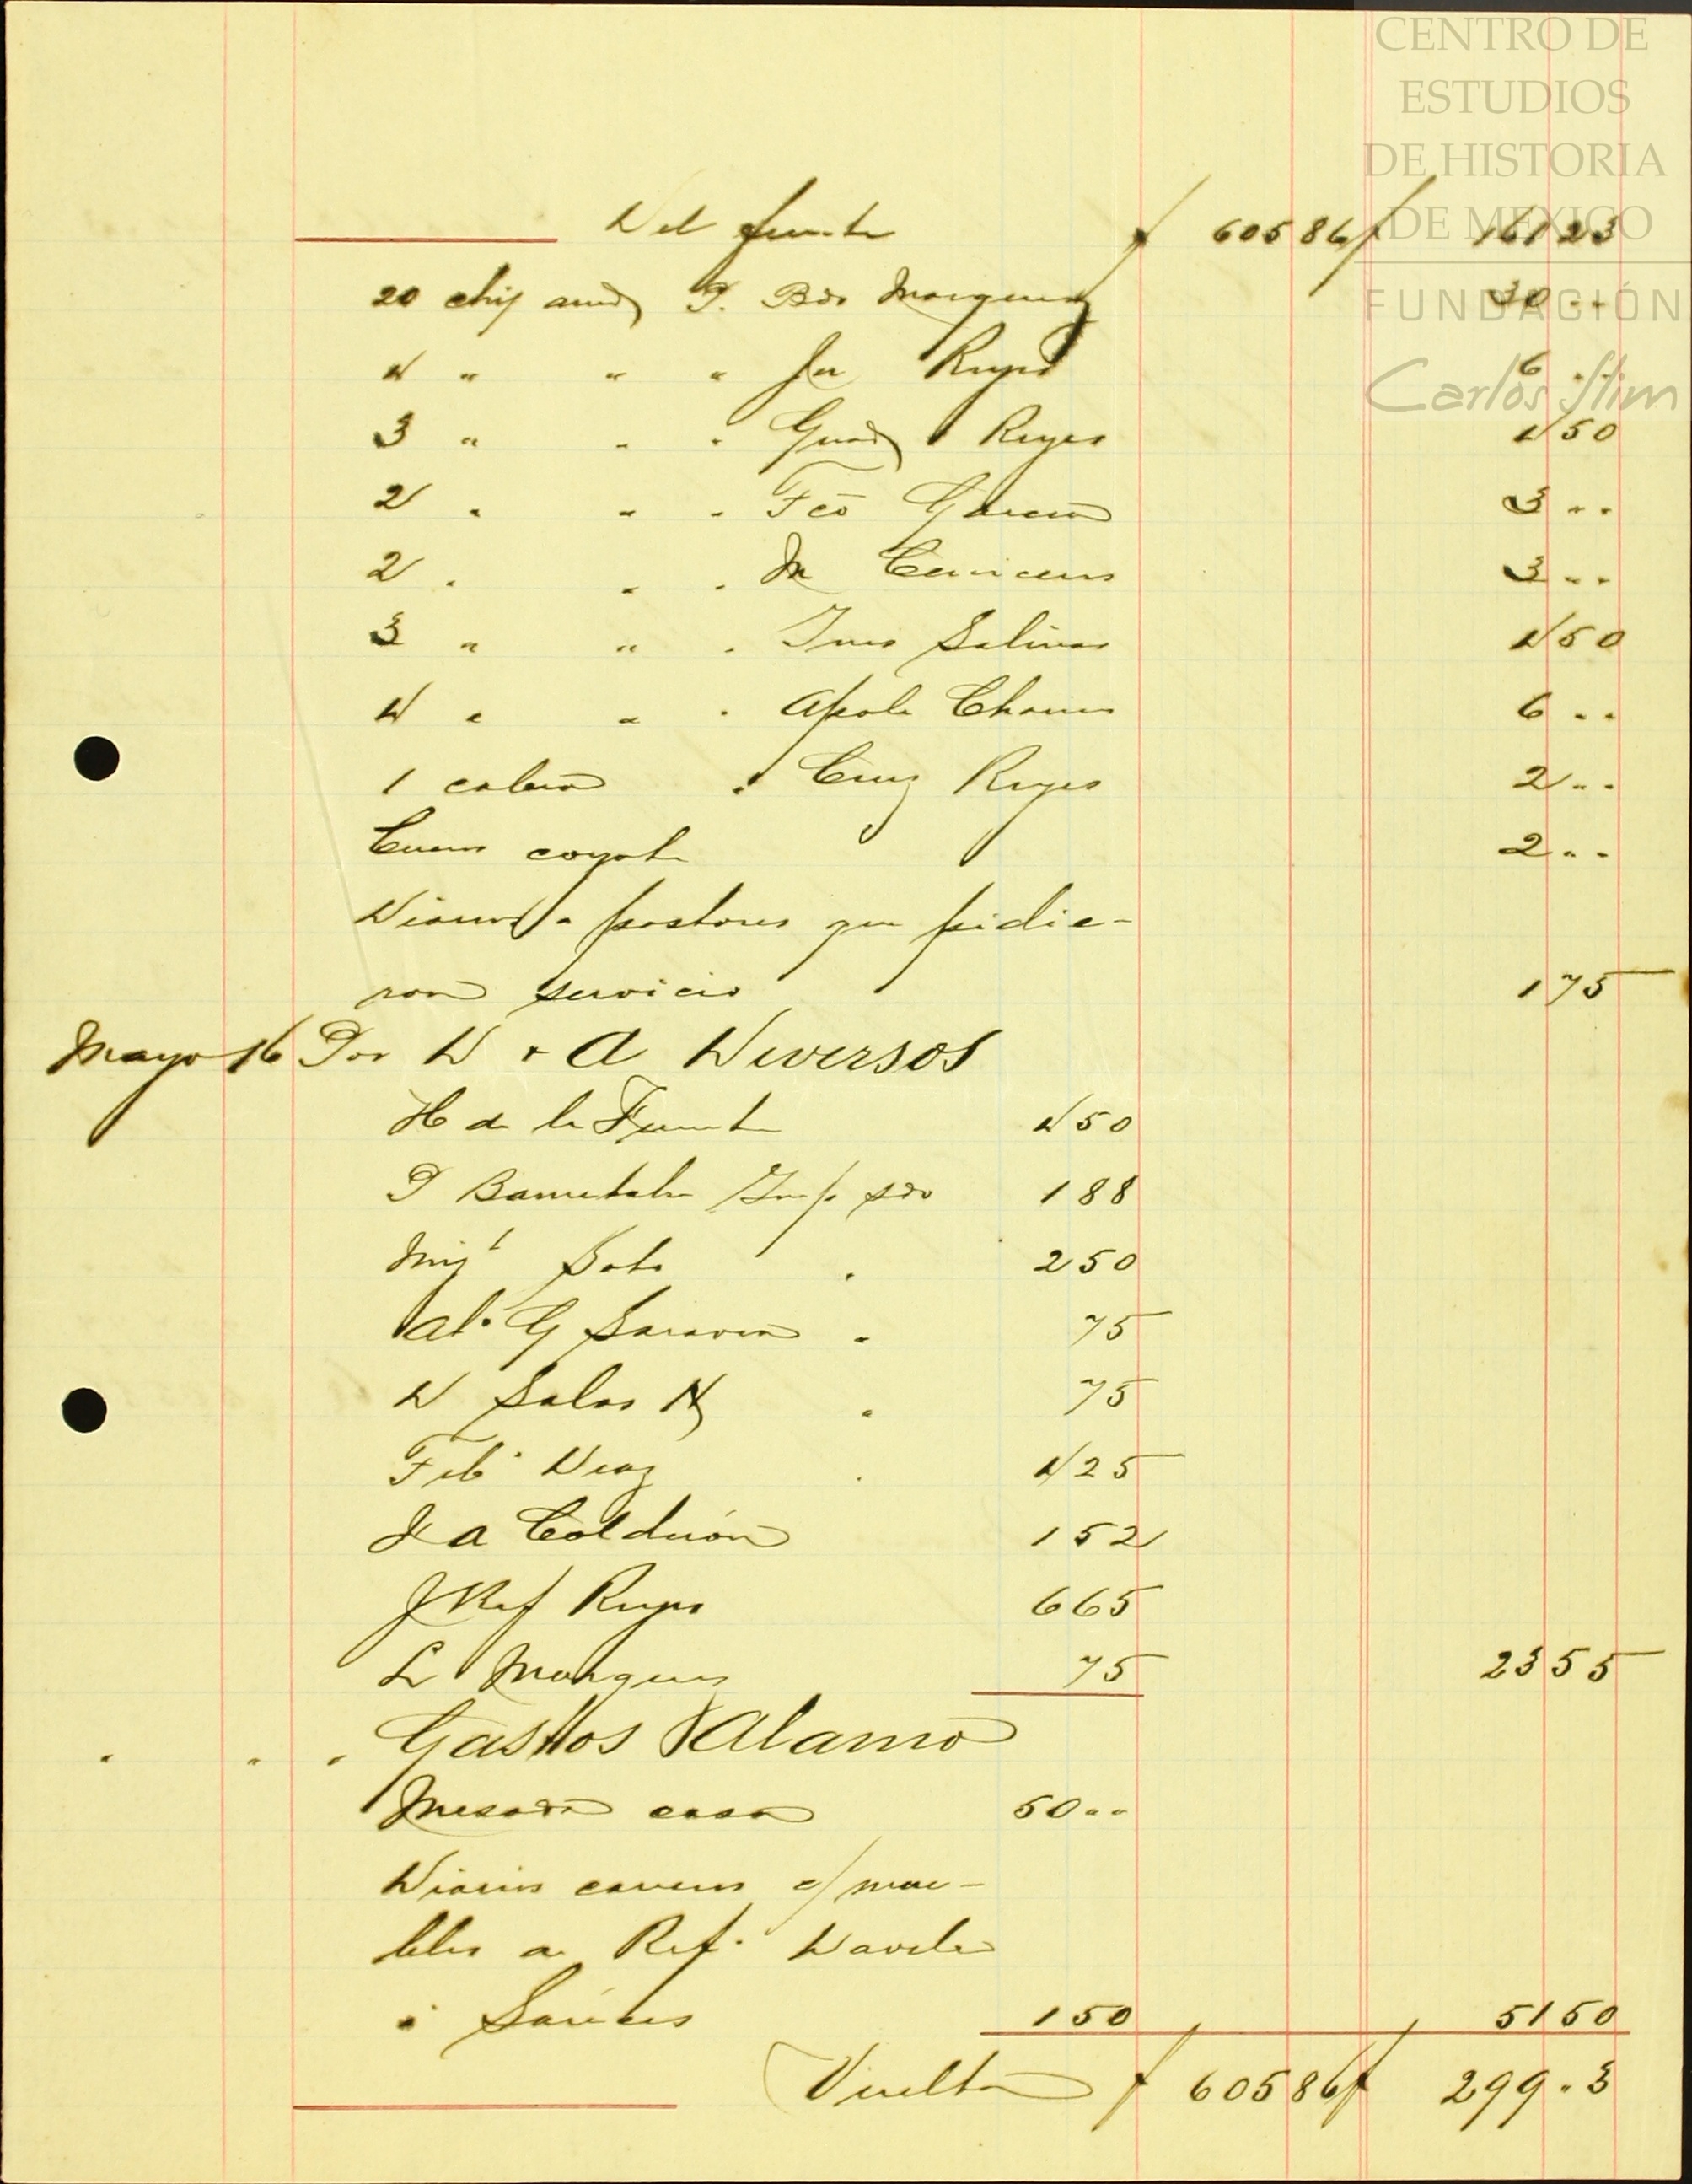 CENTRO DE
ESTUDIOS
DE HISTORIA
DE MEXICO
FUNDACIÓN
Carlos Slim
Del frente $ 605 86 $ 161 23
20 chiv P. Bdo Marquez 30 ""
4 " " " Reyes 6 ""
3 " " " Guad Reyes 4 50
2 " " " Fco Garcia 3 ""
2 " " " M Ceniceros 3 ""
3 " " " Ines Salinas 4 50
4 " " " Apolo 6 ""
1 cabra " Cruz Reyes 2 ""
coyote 2 ""
a pastores que pidie-
ron servicio 1 75
Mayo 16 Por D & A Diversos
H de la Fuente 4 50
P 1 88
Migl Soto " 2 50
G Saravia " 75
D Salas " 75
Diaz " 4 25
J A Calderón 1 52
J Ref Reyes 6 65
L Marquez 75 23 55
" " " Gastos Alamo
Mesada casa 50 ""
Diarios carros c/ mue-
bles a Ref. Davila
" 1 50 51 50
Vuelta $ 605 86 $ 299 " 3